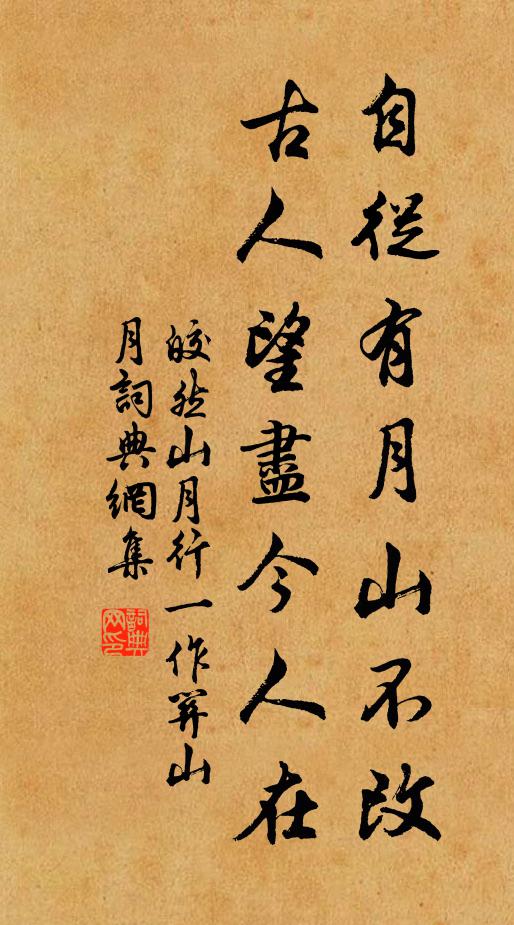 自從有月山不改
古人望盡今人在
皎然山月行一作關山
月詞典網集
詞典
网印